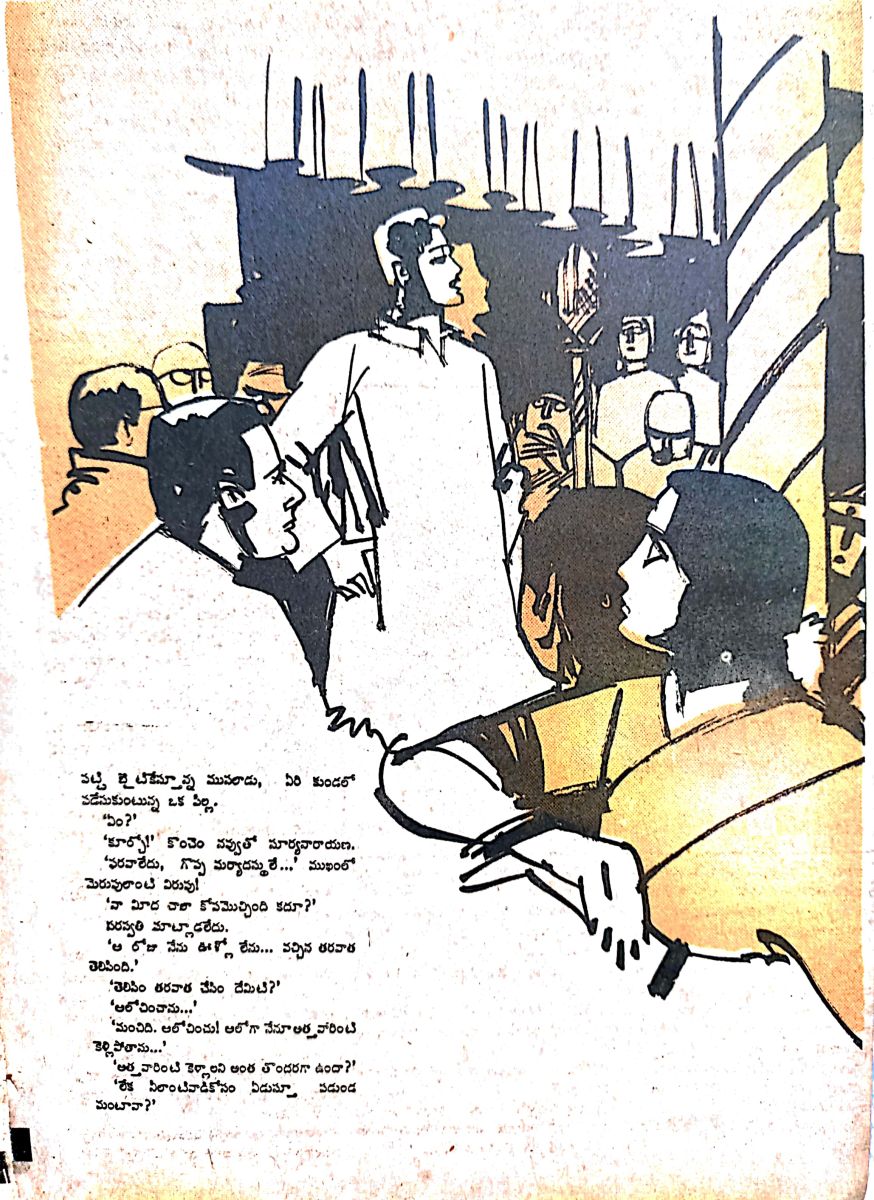 పట్టి బైటికేస్తూన్న ముసలాడు, ఏరి కుండలో
పడేసుకుంటున్న ఒక పిల్ల.
'ఏం?'
'కూర్చో!' కొంచెం నవ్వుతో సూర్యనారాయణ.
'ఫరవాలేదు, గొప్ప మర్యాదస్థులే...' ముఖంలో
మెరుపులాంటి విరుపు!
'నా మీద చాలా కోపమొచ్చింది కదూ?'
పరస్వతి మాట్లాడలేదు.
'ఆ రోజు నేను ఊళ్లో లేను... వచ్చిన తరవాత
తెలిసింది.'
'తెలిసిం తరవాత చేసిం దేమిటి?'
'ఆలోచించాను...'
'మంచిది. ఆలోచించు! ఆలోగా నేనూ అత్తవారింటి
కెళ్లిపోతాను...'
'అత్తవారింటి కెళ్లాలని అంత తొందరగా ఉందా?'
'లేక నీలాంటివాడికోసం ఏడుస్తూ పడుండ
మంటావా?'